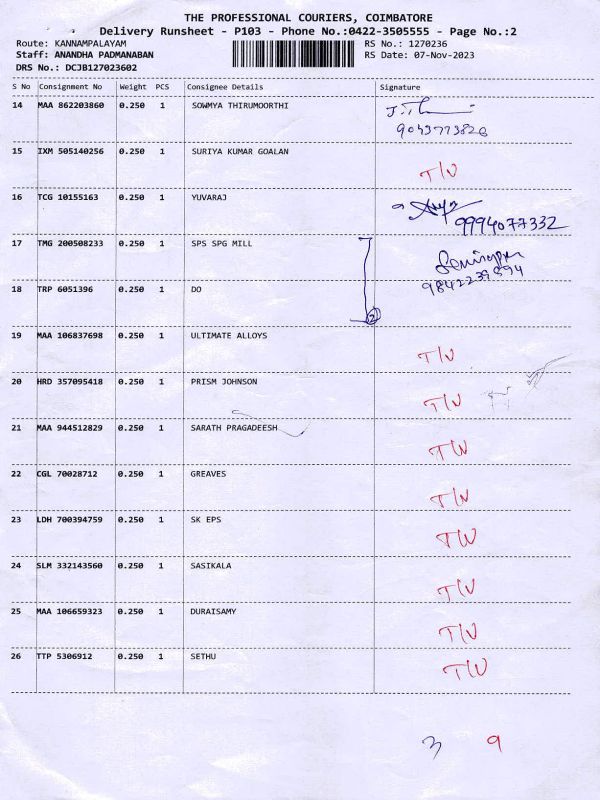 THE PROFESSIONAL COURIERS, COIMBATORE
Delivery Runsheet - P103 - Phone No.:0422-3505555 - Page No.:2
Route: KANNAMPALAYAM RS No.: 1270236
Staff: ANANDHA PADMANABAN RS Date: 07-Nov-2023
DRS No.: DCJB127023602
S No Consignment No Weight PCS Consignee Details Signature
14 MAA 862203860 0.250 1 SOWMYA THIRUMOORTHI
9043773826
15 IXM 505140256 0.250 1 SURIYA KUMAR GOALAN T/N
16 TCG 10155163 0.250 1 YUVARAJ
9994077332
17 TMG 200508233 0.250 1 SPS SPG MILL
9842239594
18 TRP 6051396 0.250 1 DO
2
19 MAA 106837698 0.250 1 ULTIMATE ALLOYS T/N
20 HRD 357095418 0.250 1 PRISM JOHNSON T/N
21 MAA 944512829 0.250 1 SARATH PRAGADEESH T/N
22 CGL 70028712 0.250 1 GREAVES T/N
23 LDH 700394759 0.250 1 SK EPS T/N
24 SLM 332143560 0.250 1 SASIKALA T/N
25 MAA 106659323 0.250 1 DURAISAMY T/N
26 TTP 5306912 0.250 1 SETHU T/N
3 9